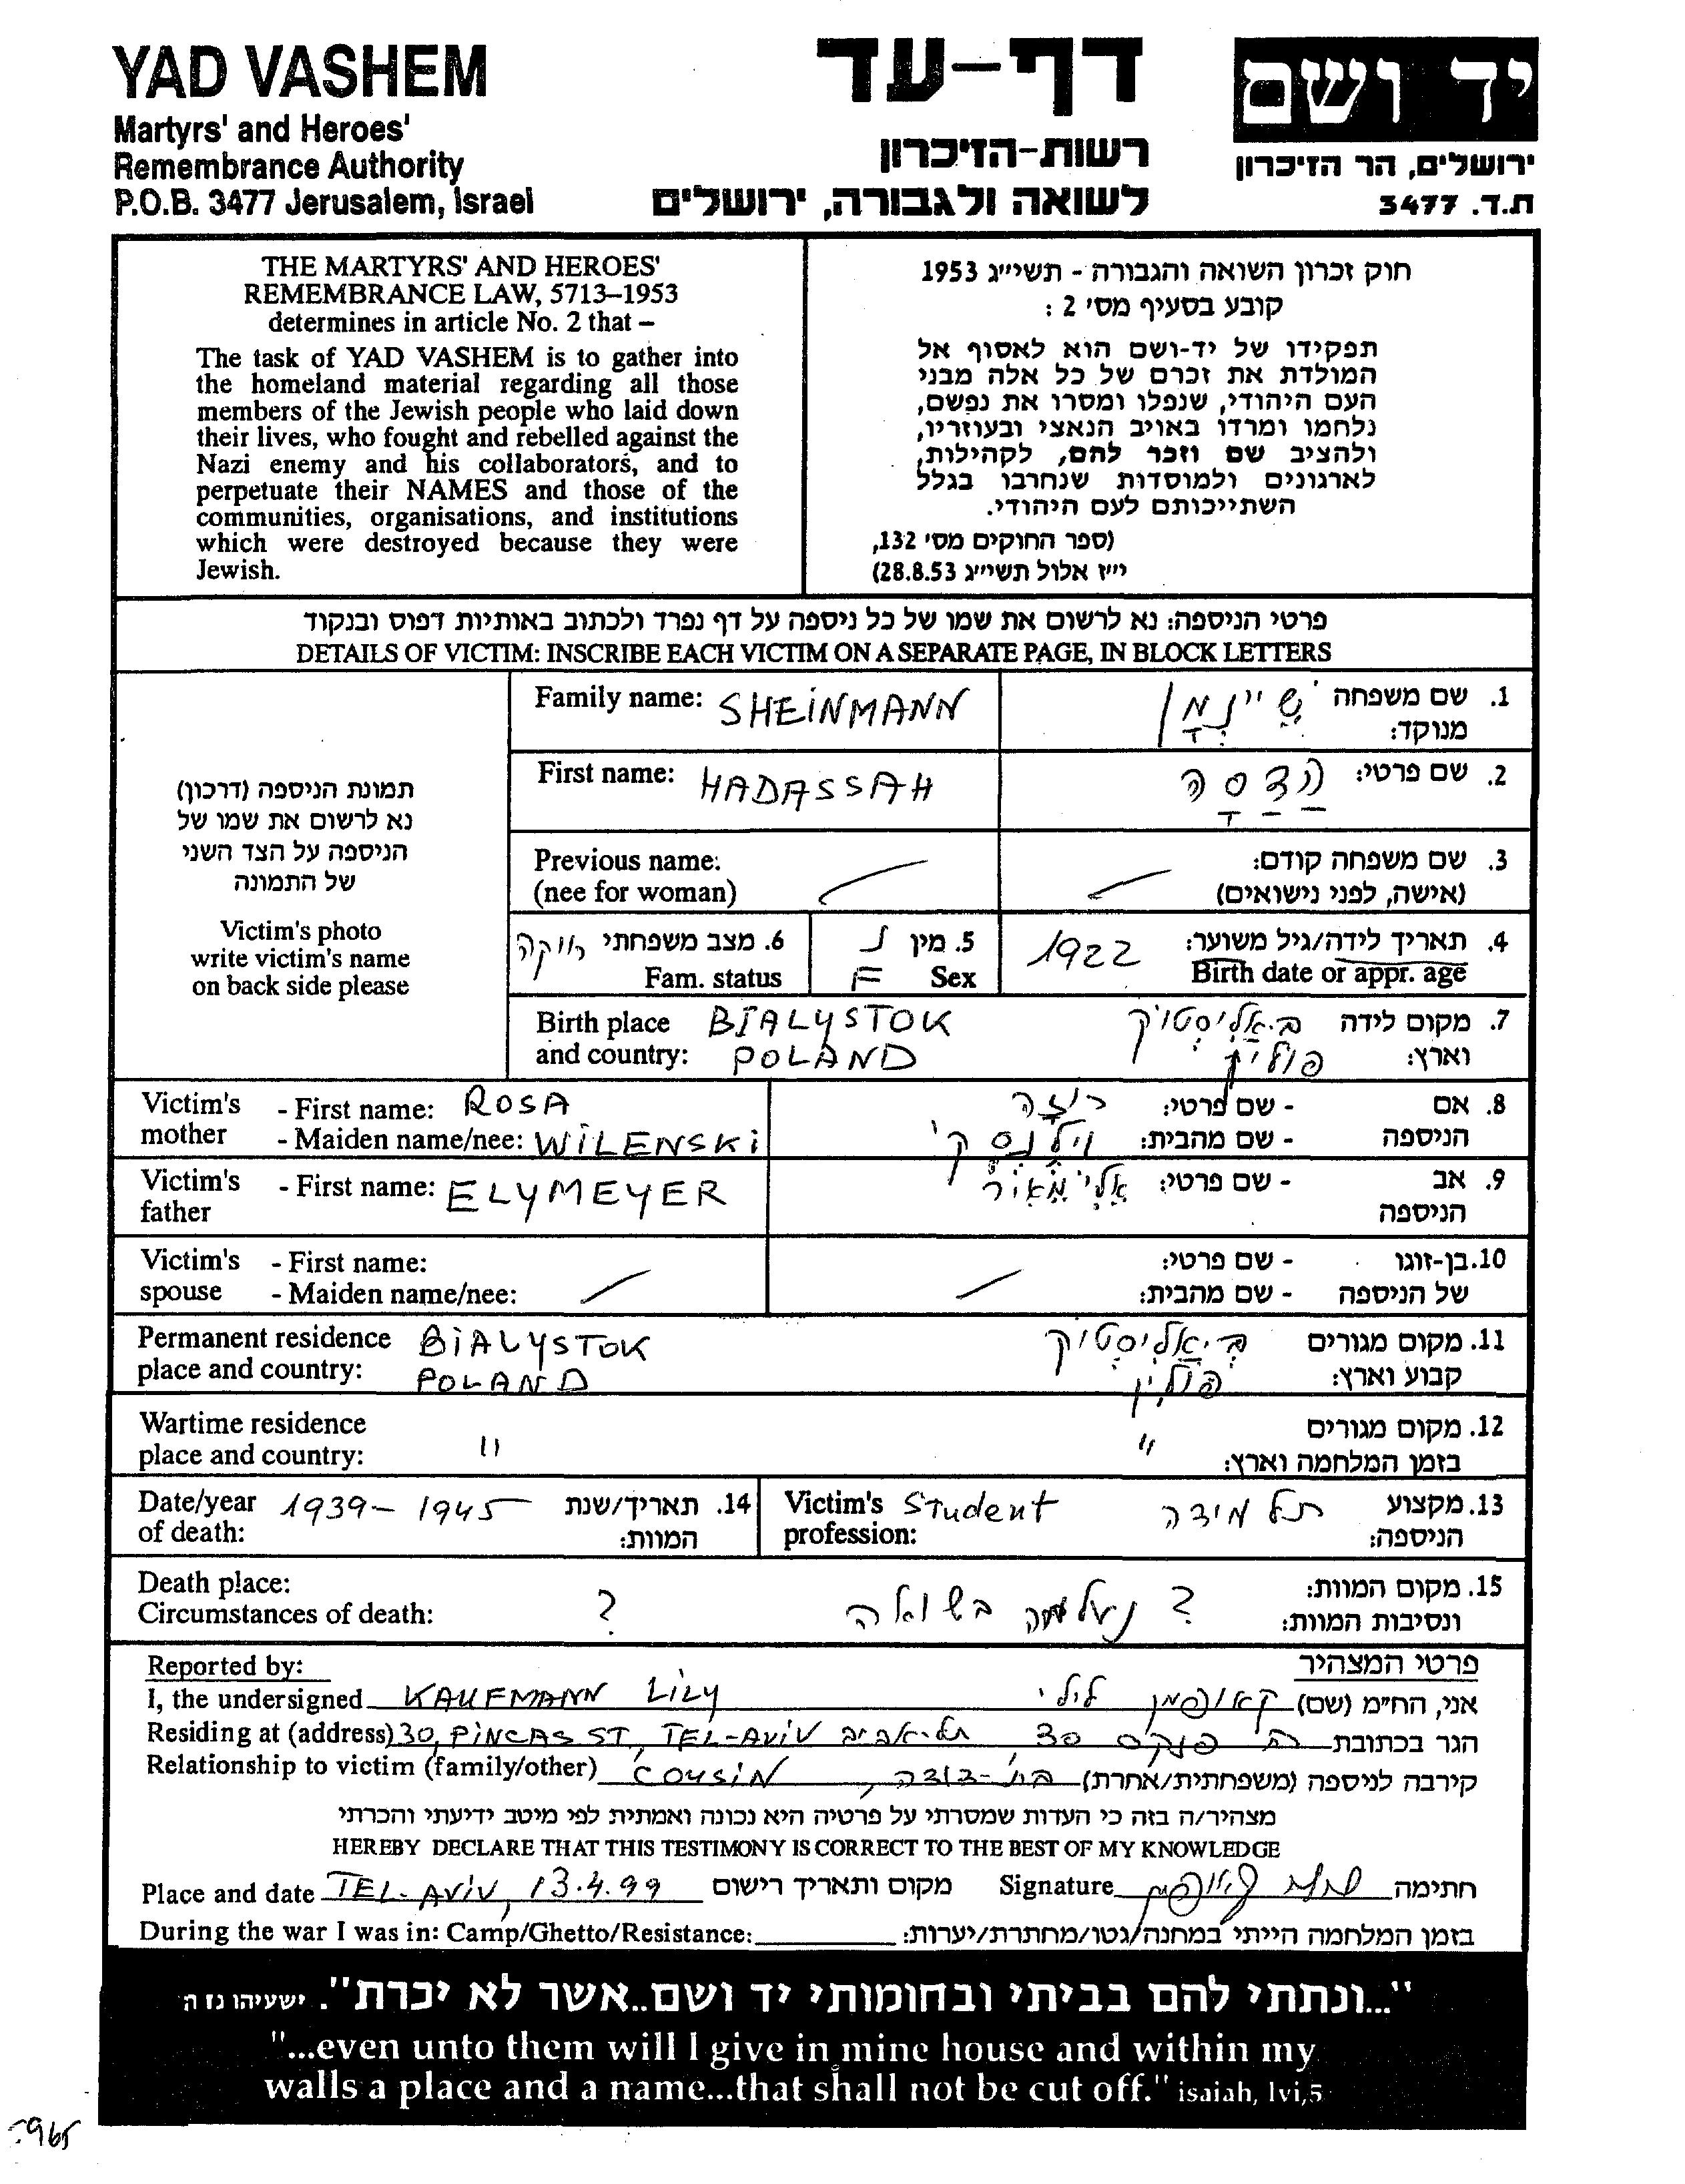 YAD VASHEM
Martyrs' and Heroes'
Remembrance Authority
P.O.B. 3477 Jerusalem, Israel
דף-עד
רשות-הזיכרון
לשואה ולגבורה, ירושלים
יד ושם
ירושלים, הר הזיכרון
ת.ד. 3477
THE MARTYRS' AND HEROES'
REMEMBRANCE LAW, 5713–1953
determines in article No. 2 that –
The task of YAD VASHEM is to gather into
the homeland material regarding all those
members of the Jewish people who laid down
their lives, who fought and rebelled against the
Nazi enemy and his collaborators, and to
perpetuate their NAMES and those of the
communities, organisations, and institutions
which were destroyed because they were
Jewish.
חוק זכרון השואה והגבורה - תשי״ג 1953
קובע בסעיף מס׳ 2 :
תפקידו של יד-ושם הוא לאסוף אל
המולדת את זכרם של כל אלה מבני
העם היהודי, שנפלו ומסרו את נפשם,
נלחמו ומרדו באויב הנאצי ובעוזריו,
ולהציב שם וזכר להם, לקהילות,
לארגונים ולמוסדות שנחרבו בגלל
השתייכותם לעם היהודי.
(ספר החוקים מס׳ 132,
י״ז אלול תשי״ג 28.8.53)
פרטי הניספה: נא לרשום את שמו של כל ניספה על דף נפרד ולכתוב באותיות דפוס ובנקוד
DETAILS OF VICTIM: INSCRIBE EACH VICTIM ON A SEPARATE PAGE, IN BLOCK LETTERS
תמונת הניספה (דרכון)
נא לרשום את שמו של
הניספה על הצד השני
של התמונה
Victim's photo
write victim's name
on back side please
Family name: SHEINMANN
1. שם משפחה מנוקד: שַיינְמַן
First name: HADASSAH
2. שם פרטי: הַדַסָה
Previous name:
(nee for woman)
3. שם משפחה קודם:
(אישה, לפני נישואים)
6. מצב משפחתי רווקה
Fam. status
5. מין נ
F Sex
4. תאריך לידה/גיל משוער: 1922
Birth date or appr. age
Birth place BIALYSTOK
and country: POLAND
7. מקום לידה ביאליסטוק
וארץ: פולין
Victim's mother - First name: ROSA
- Maiden name/nee: WILENSKI
8. אם הניספה - שם פרטי: רוזה
- שם מהבית: וילנסקי
Victim's father - First name: ELYMEYER
9. אב הניספה - שם פרטי: אלימאיר
Victim's spouse - First name:
- Maiden name/nee:
10. בן-זוגו של הניספה - שם פרטי:
- שם מהבית:
Permanent residence BIALYSTOK
place and country: POLAND
11. מקום מגורים ביאליסטוק
קבוע וארץ: פולין
Wartime residence
place and country: "
12. מקום מגורים
בזמן המלחמה וארץ: "
Date/year of death: 1939-1945
14. תאריך/שנת המוות:
Victim's profession: Student
13. מקצוע הניספה: תלמידה
Death place:
Circumstances of death: ?
15. מקום המוות:
ונסיבות המוות: ? נעלמה בשואה
Reported by:
פרטי המצהיר
I, the undersigned KAUFMANN LILY
אני, הח״מ (שם) קאופמן לילי
Residing at (address) 30, PINCAS ST, TEL-AVIV
הגר בכתובת פנקס 30 תל-אביב
Relationship to victim (family/other) COUSIN
קירבה לניספה (משפחתית/אחרת) בת-דודה
מצהיר/ה בזה כי העדות שמסרתי על פרטיה היא נכונה ואמתית לפי מיטב ידיעתי והכרתי
HEREBY DECLARE THAT THIS TESTIMONY IS CORRECT TO THE BEST OF MY KNOWLEDGE
Place and date TEL-AVIV, 13.4.99 מקום ותאריך רישום
Signature חתימה
During the war I was in: Camp/Ghetto/Resistance:
בזמן המלחמה הייתי במחנה/גטו/מחתרת/יערות:
"...ונתתי להם בביתי ובחומותי יד ושם..אשר לא יכרת". ישעיהו נז ה
"...even unto them will I give in mine house and within my
walls a place and a name...that shall not be cut off." isaiah, lvi,5